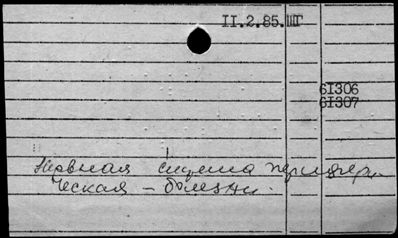 II.2.85.ШТ
61306
61307
Нервная система перифери-
ческая – болезни.